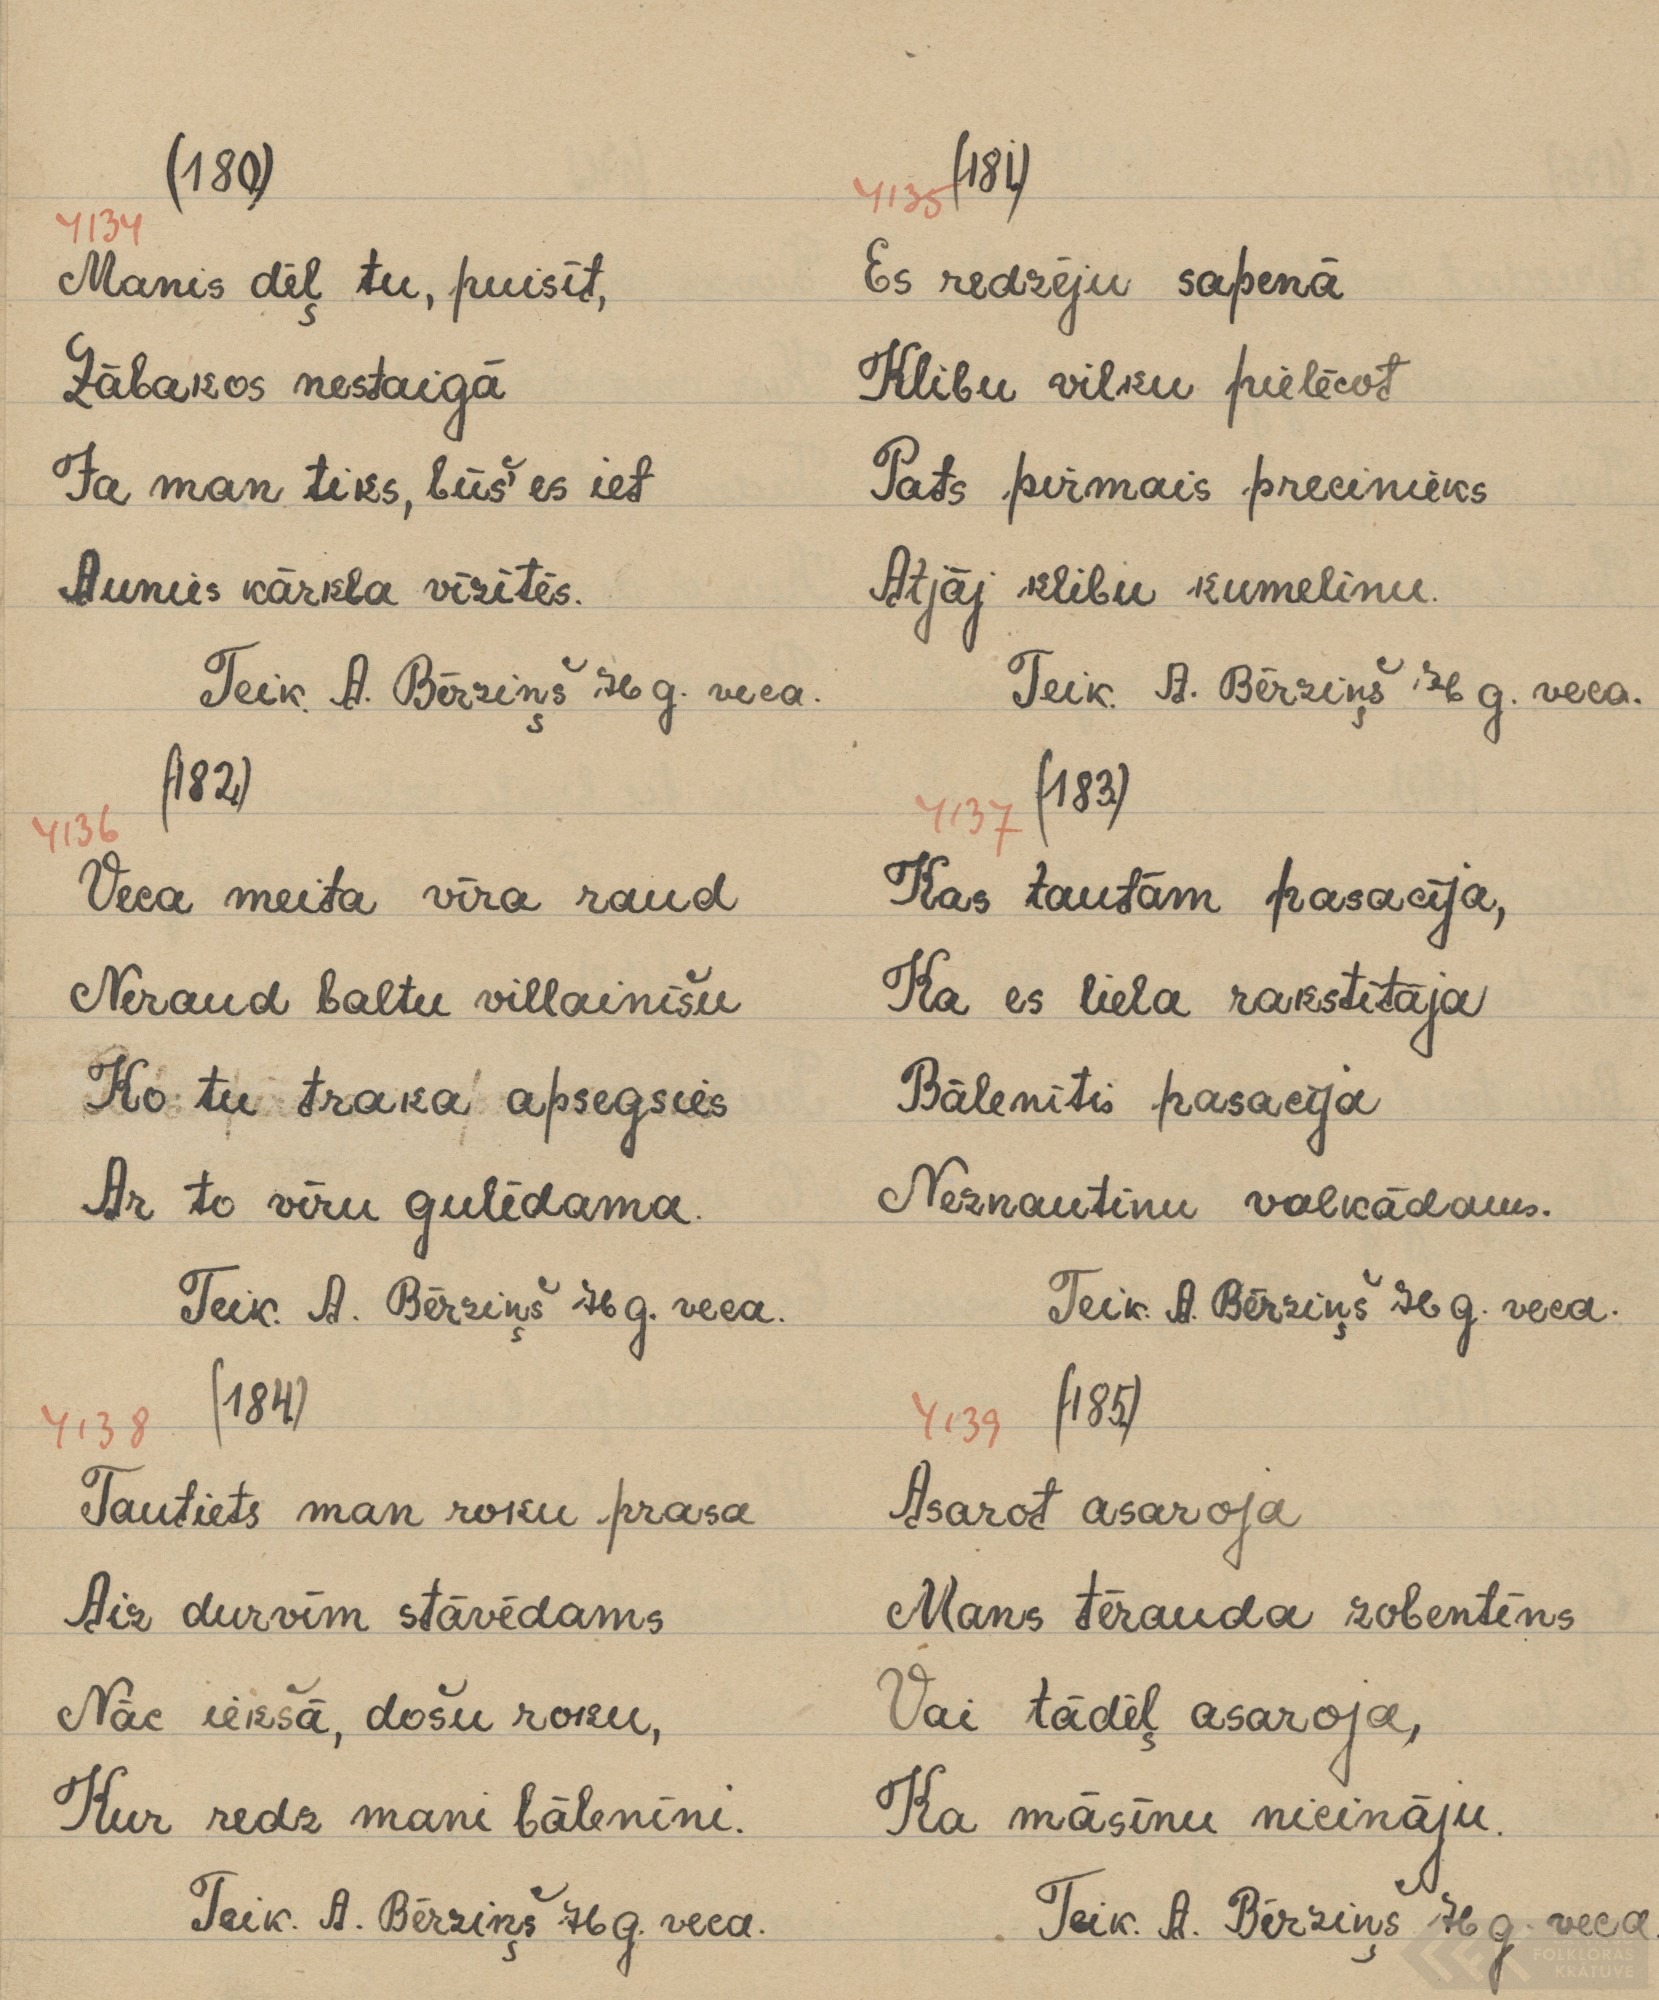 (180)
4134
Manis dēļ tu, puisīt,
Zābakos nestaigā
Ja man tiks, būš' es iet
Aunies kārkla vīzītēs.
Teik. A. Bērziņš 76 g. veca.
(181)
4135
Es redzēju sapenā
Klibu vilku pielēcot
Pats pirmais precinieks
Atjāj klibu kumelinu.
Teik. A. Bērziņš 76 g. veca.
(182)
4136
Veca meita vīra raud
Neraud baltu villainīšu
Ko tu traka apsegsies
Ar to vīru gulēdama.
Teik. A. Bērziņš 76 g. veca.
(183)
4137
Kas tautām pasacīja,
Ka es liela rakstītāja
Bālenītis pasacīja
Neznautīnu valkādams.
Teik. A. Bērziņš 76 g. veca.
(184)
4138
Tautiets man roku prasa
Aiz durvīm stāvēdams
Nāc iekšā, došu roku,
Kur redz mani bālenīni.
Teik. A. Bērziņš 76 g. veca.
(185)
4139
Asarot asaroja
Mans tērauda zobentīns
Vai tādēļ asaroja,
Ka māsīnu nicināju.
Teik. A. Bērziņš 76 g. veca
FOLKLORAS
KRĀTUVE